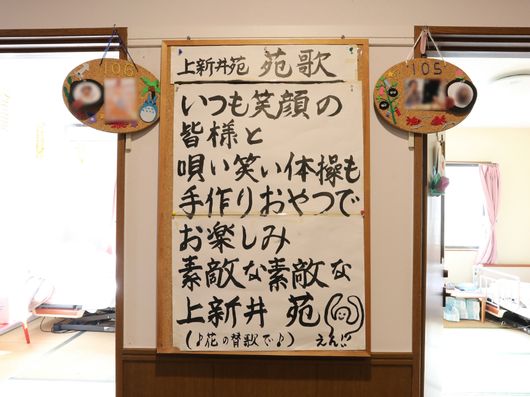 上新井苑 苑歌
いつも笑顔の
皆様と
唄い笑い体操も
手作りおやつで
お楽しみ
素敵な素敵な
上新井 苑
(♪花の替歌で♪) えん!!
106
105